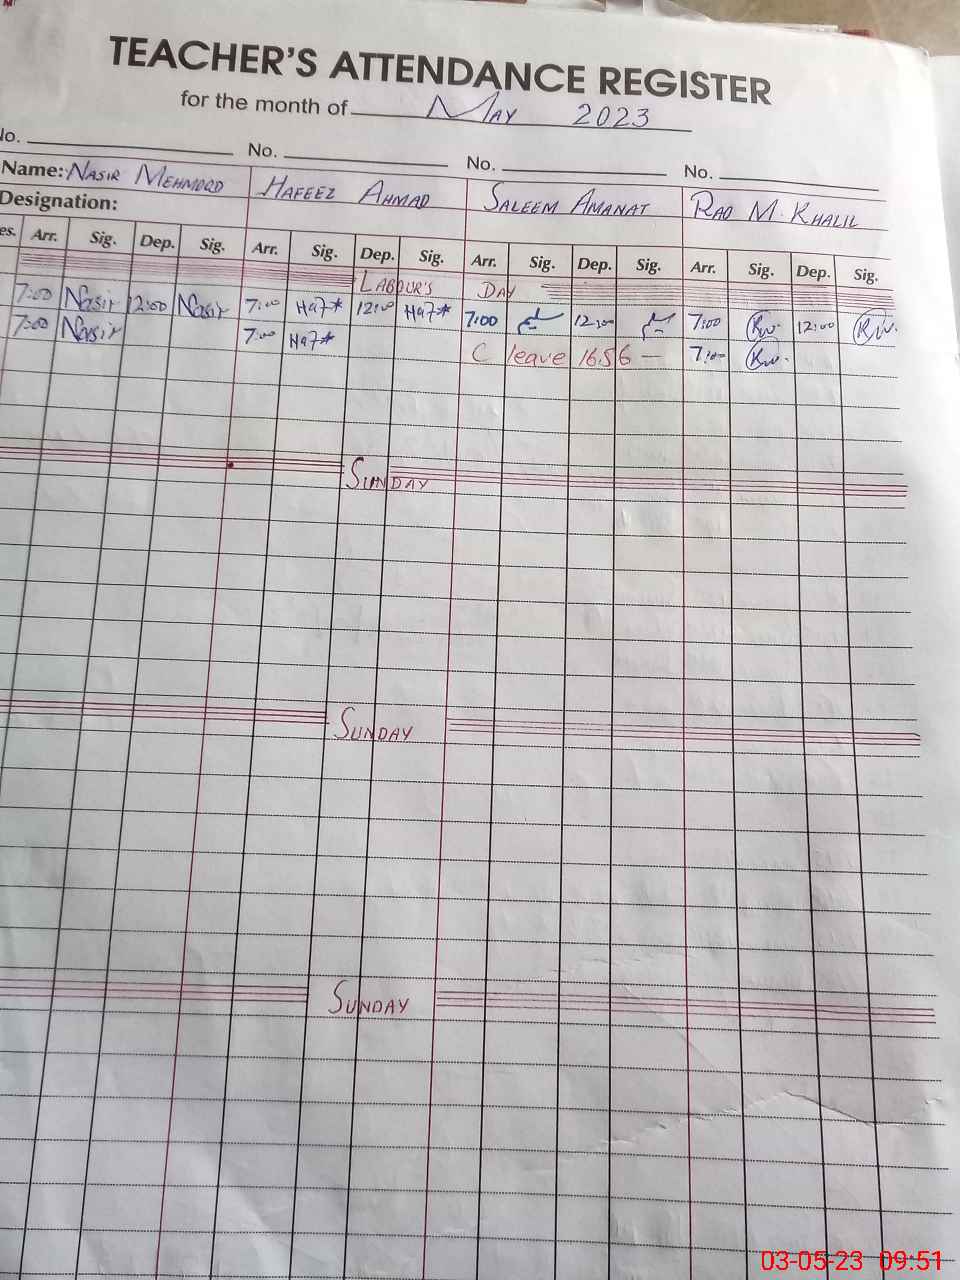 TEACHER'S ATTENDANCE REGISTER
for the month of MAY 2023
No. No. No. No.
Name: NASIR MEHMOOD HAFEEZ AHMAD SALEEM AMANAT RAO M. KHALIL
Designation:
es. Arr. Sig. Dep. Sig. Arr. Sig. Dep. Sig. Arr. Sig. Dep. Sig. Arr. Sig. Dep. Sig.
LABOUR'S DAY
7:00 Nasir 12:00 Nasir 7:00 Haf* 12:00 Haf* 7:00 12:00 7:00 12:00
7:00 Nasir 7:00 Haf* C leave 1656 — 7:00
SUNDAY
SUNDAY
SUNDAY
03-05-23 09:51